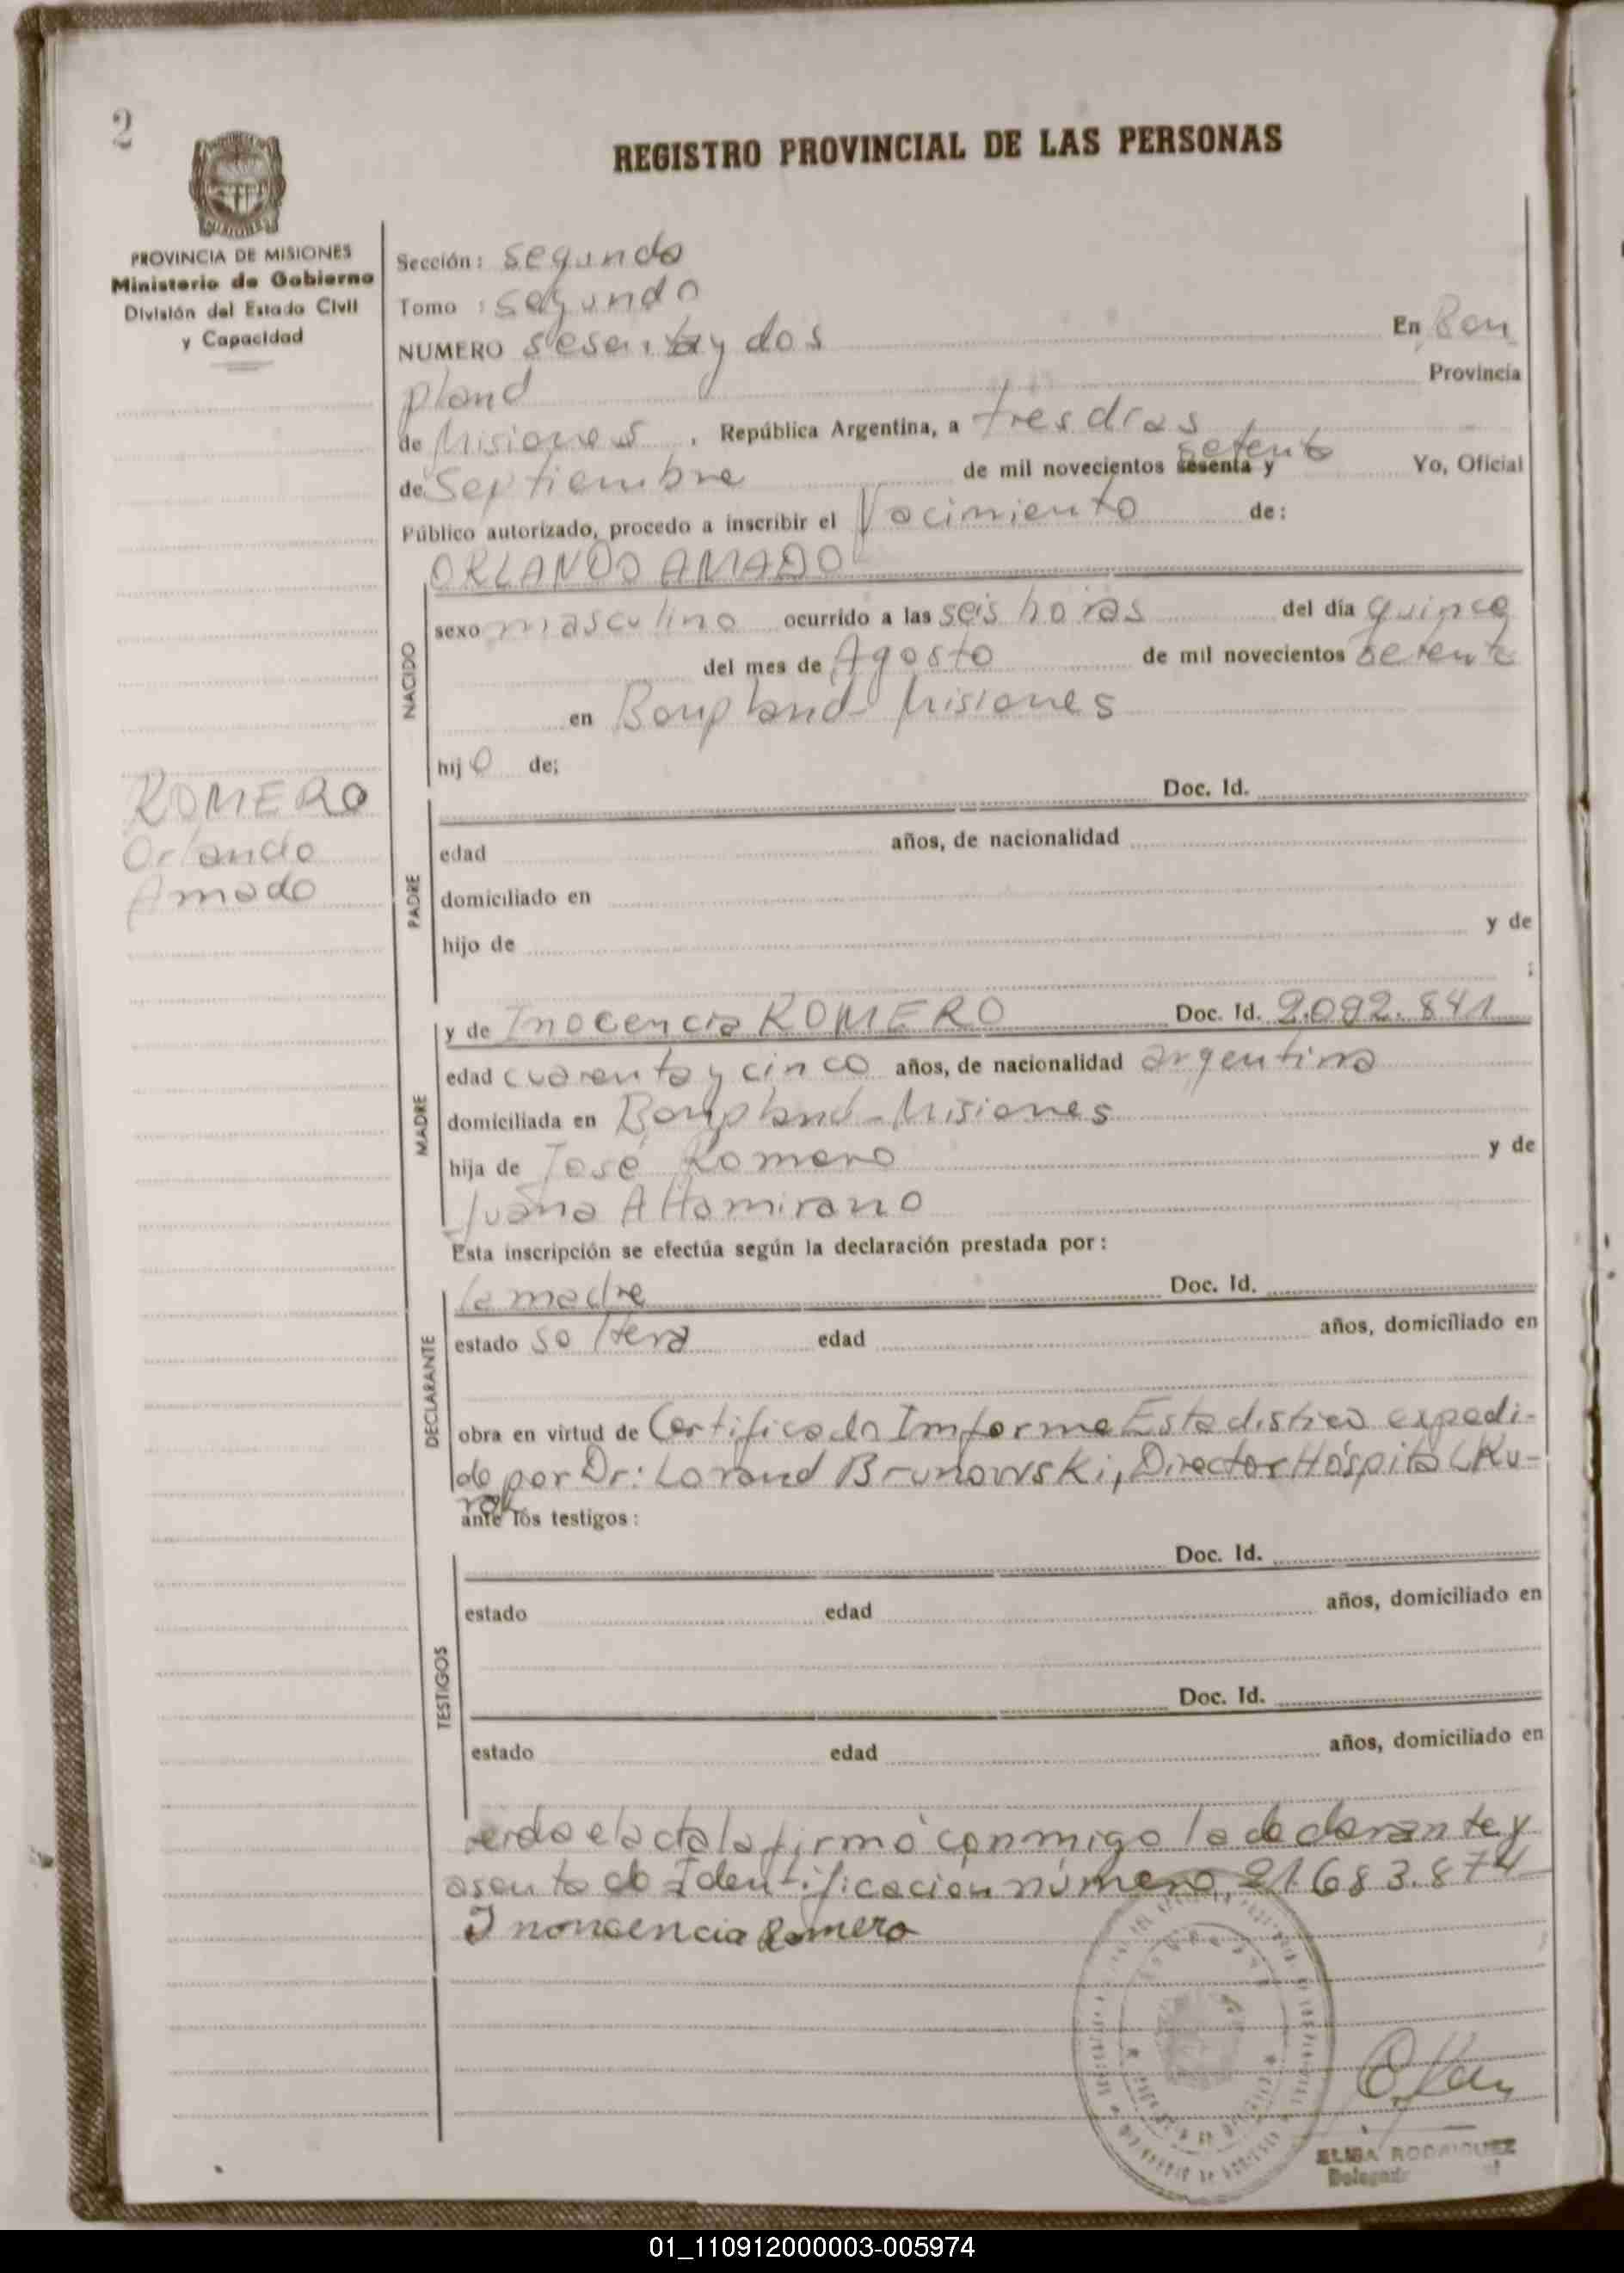 2
REGISTRO PROVINCIAL DE LAS PERSONAS
PROVINCIA DE MISIONES
Ministerio de Gobierno
División del Estado Civil
y Capacidad
Sección: segundo
Tomo : segundo
NUMERO sesenta y dos En Bon
pland Provincia
de Misiones, República Argentina, a tres dias
setenta
de Septiembre de mil novecientos sesenta y Yo, Oficial
Público autorizado, procedo a inscribir el Nacimiento de:
ORLANDO AMADO
NACIDO
sexo masculino ocurrido a las seis horas del día quince
del mes de Agosto de mil novecientos setenta
en Bonpland-Misiones
hijo de;
ROMERO
Orlando
Amado
PADRE
Doc. Id.
edad años, de nacionalidad
domiciliado en
hijo de y de
;
MADRE
y de Inocencia ROMERO Doc. Id. 2.092.841
edad cuarenta y cinco años, de nacionalidad argentina
domiciliada en Bonpland-Misiones
hija de José Romero y de
Juana Altamirano
Esta inscripción se efectúa según la declaración prestada por:
DECLARANTE
la madre Doc. Id.
estado soltera edad años, domiciliado en
obra en virtud de Certificado Imforme Estadistico expedi-
do por Dr: Lorand Brunowski, Director Hospital Ku-
ante los testigos:
TESTIGOS
Doc. Id.
estado edad años, domiciliado en
Doc. Id.
estado edad años, domiciliado en
leida el acta la firmó conmigo la declarante y
asento de Identificación número 21.683.874
Inoncencia Romero
ELISA RODRIGUEZ
Delegada
01_110912000003-005974